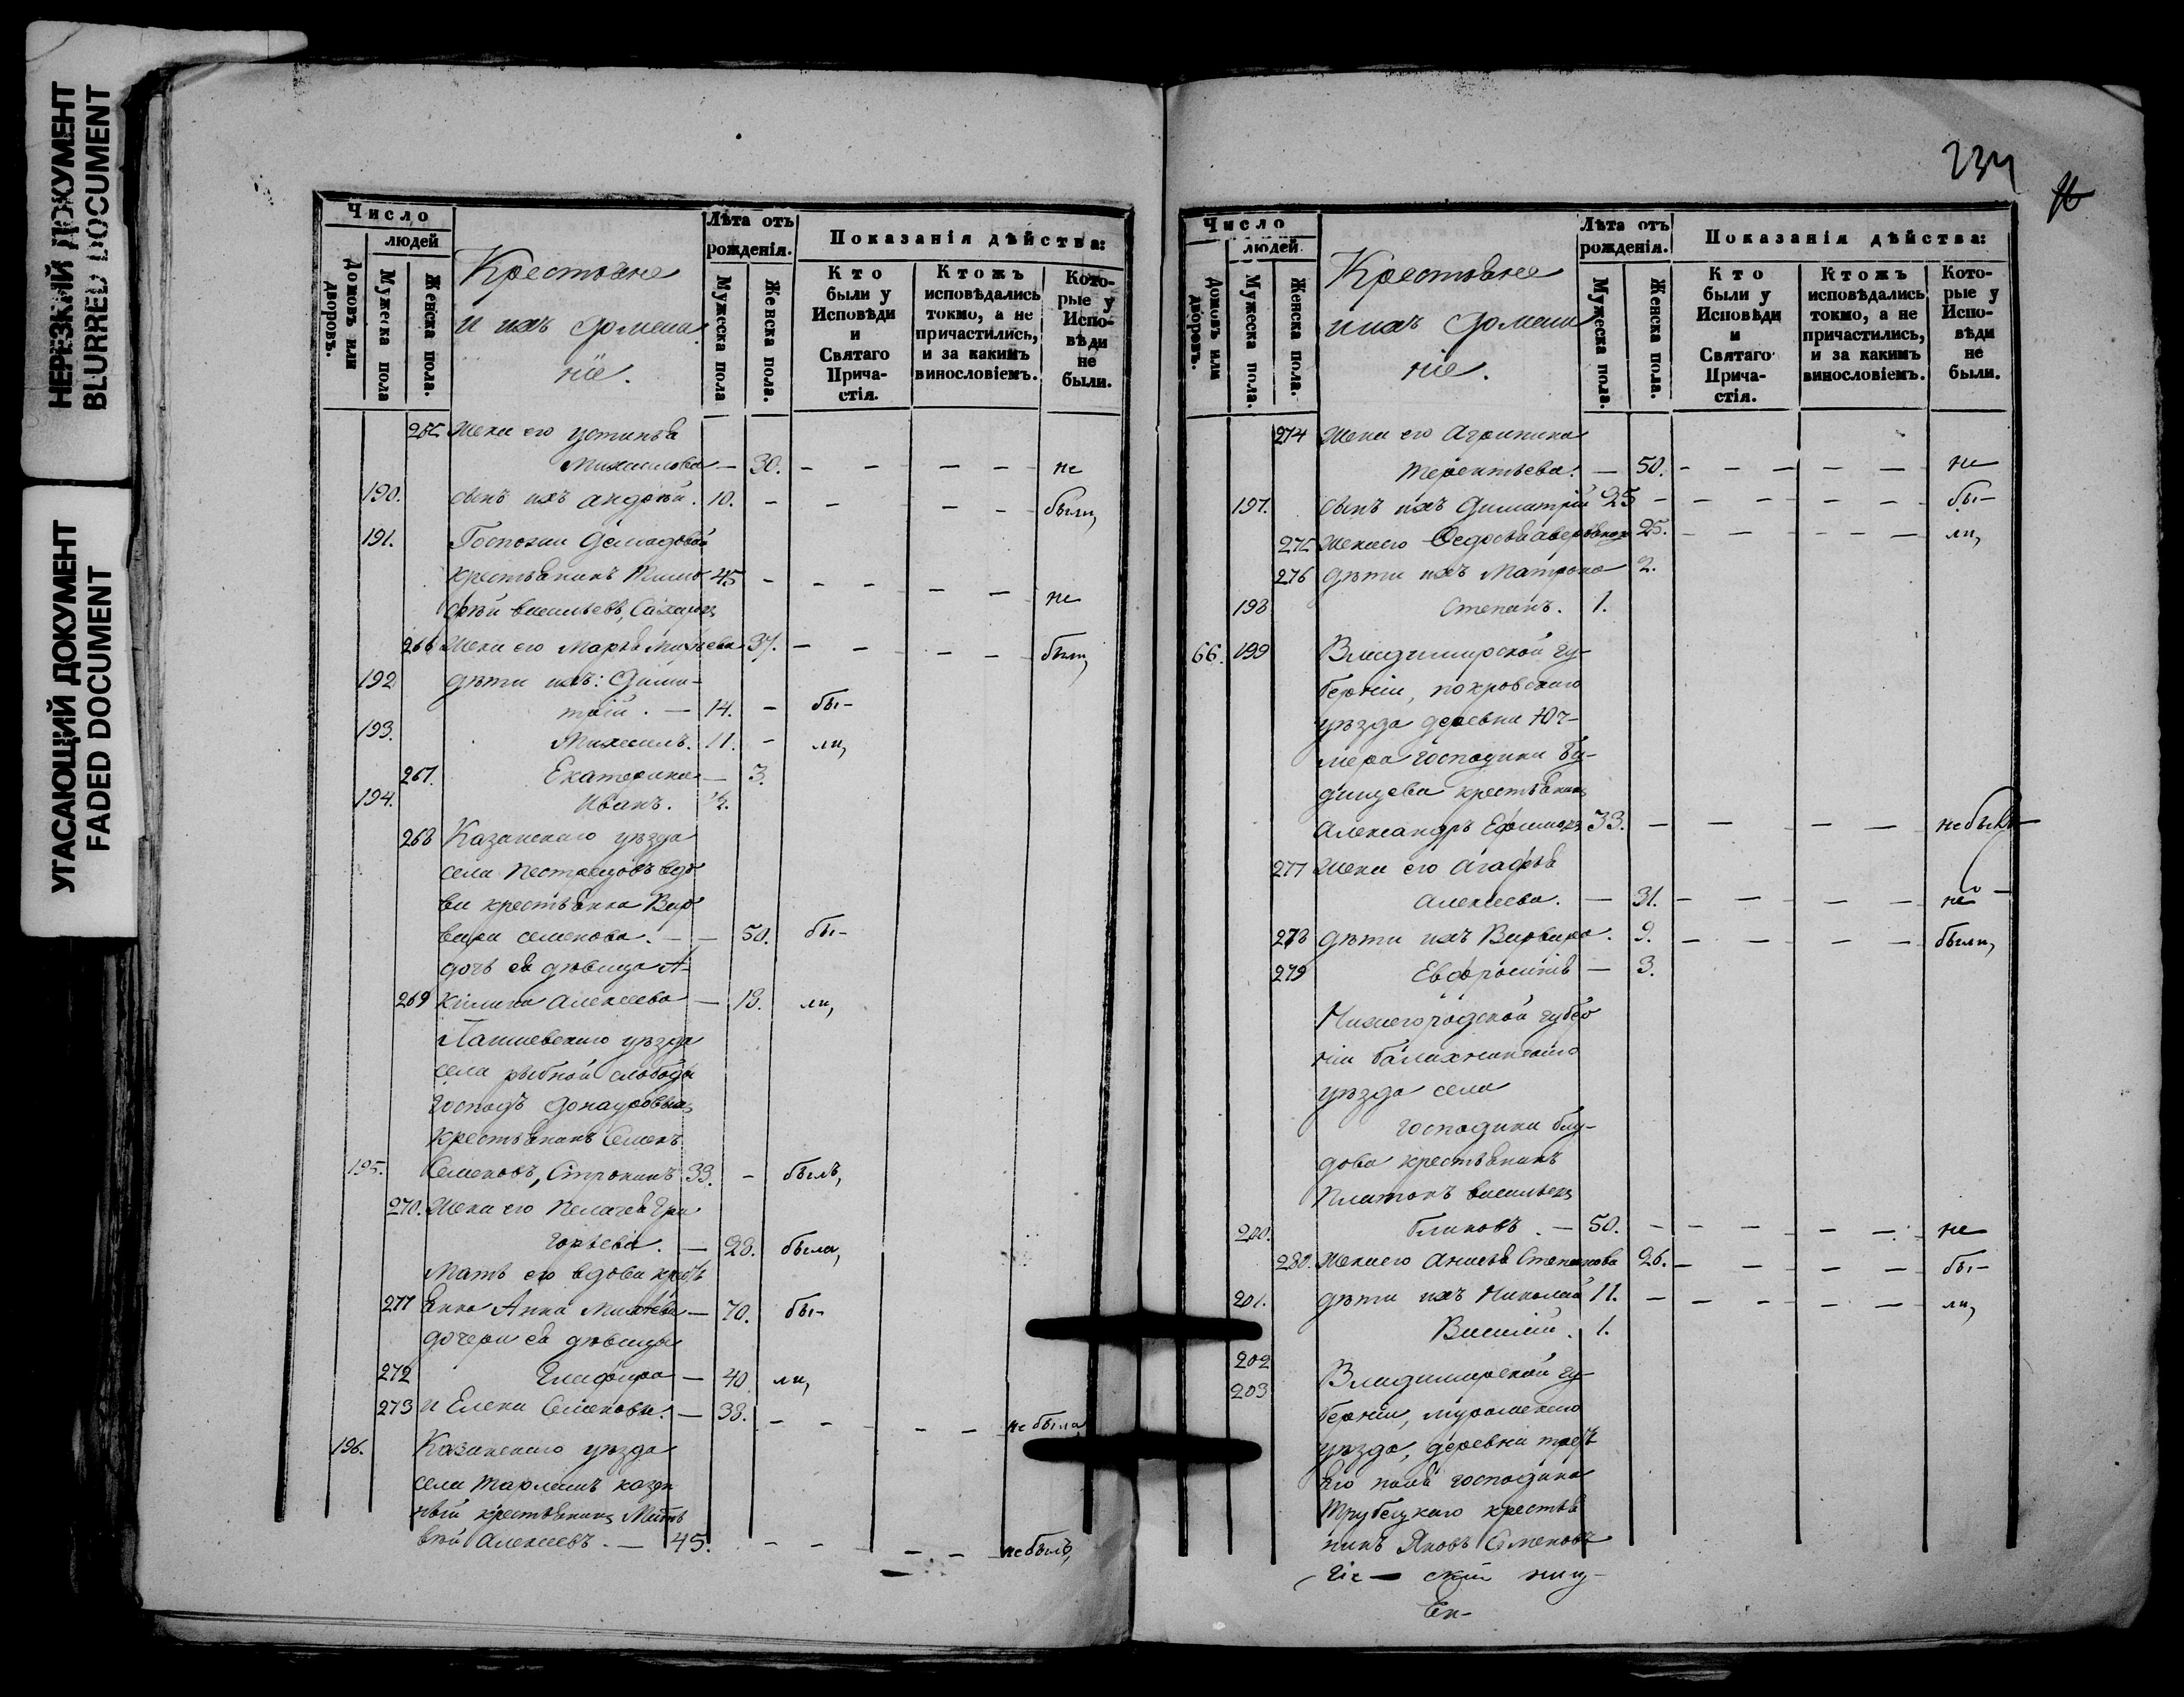 НЕРЕЗКИЙ ДОКУМЕНТ
BLURRED DOCUMENT
УГАСАЮЩИЙ ДОКУМЕНТ
FADED DOCUMENT
Число
людей
Домовъ или дворовъ.
Мужеска пола
Женска пола.
Крестьяне
и ихъ домаш
ніе.
Лѣта отъ
рожденія.
Мужеска пола
Женска пола.
Показанія дѣйства:
Кто
были у
Исповѣди
и
Святаго
Прича-
стія.
Ктожъ
исповѣдались
токмо, а не
причастились,
и за какимъ
винословіемъ.
Кото-
рые у
Испо-
вѣди
не
были.
265 Жена его Устинья
Михаилова — 30. – – – – не
190. сынъ ихъ Андрей. 10. – – – – были,
191. Госпожи Демидовой
крестьянинъ Тимо 45 – – – – –
фей Васильевъ, не
266 Жена его Марья 37. – – – – были,
192 дѣти ихъ: Дими-
трій. — 14. – бы-
193. Михаилъ. 11. – ли,
267. Екатерина — 3.
194. Иванъ. ½.
268 Казанскаго уѣзда
села Пестрецовъ вдо
ва крестьянка Вар
вара Семенова. — — 50. бы-
дочь ея дѣвица А-
269 килина Алексеева — 18. ли,
Лаишевскаго уѣзда
села рыбной слободы
господъ
крестьянинъ Семенъ
195. Семеновъ, Строкинъ 33. – былъ,
270. Жена его Пелагея Гри
горьева. — 28. была,
Мать его вдова кресть
277 янка Анна — 70. бы-
дочери ея дѣвицы
272 Глафира — 40 ли,
273 и Елена Семеновы. — 38. – – – – не была
196. Казанскаго уѣзда
села Тарлашъ казен
ный крестьянинъ Мат
вѣй Алексеевъ. — 45. – – – – не былъ,
234
Число
людей.
Домовъ или дворовъ.
Мужеска пола.
Женска пола.
Крестьяне
и ихъ домаш
ніе.
Лѣта отъ
рожденія.
Мужеска пола.
Женска пола.
Показанія дѣйства:
Кто
были у
Исповѣди
и
Святаго
Прича-
стія.
Ктожъ
исповѣдались
токмо, а не
причастились,
и за какимъ
винословіемъ.
Кото-
рые у
Испо-
вѣди
не
были.
274 Жена его Агрипина
Терентьева. — 50. – – – – – не
197. сынъ ихъ Димитрій 25 – – – – – бы-
275 Жена его Ѳедосья 25. – – – – – ли,
276 дѣти ихъ Матрона 2.
198 Степанъ. 1.
66. 199 Владимирской гу-
берніи, покровскаго
уѣзда деревни Юч-
мера господина
крестьянинъ
Александръ Ефимовъ 33. – – – – не былъ
277 Жена его Агафья
Алексеева. — 31. – – – – не
278 дѣти ихъ Варвара. 9. – – – – были,
279 Евфросинія — 3.
Нижегородской губер
ніи балахнинскаго
уѣзда села
господина
крестьянинъ
Платонъ Васильевъ
200. Блиновъ. — 50. – – – – – не
280. Жена его Анисья Степанова 26. – – – – бы-
201. дѣти ихъ Николай 11. – – – – – ли,
202 Василій. 1.
203 Владимирской гу-
берніи, муромскаго
уѣзда, деревни
господина
Трубецкаго крестья
нинъ Яковъ Семеновъ